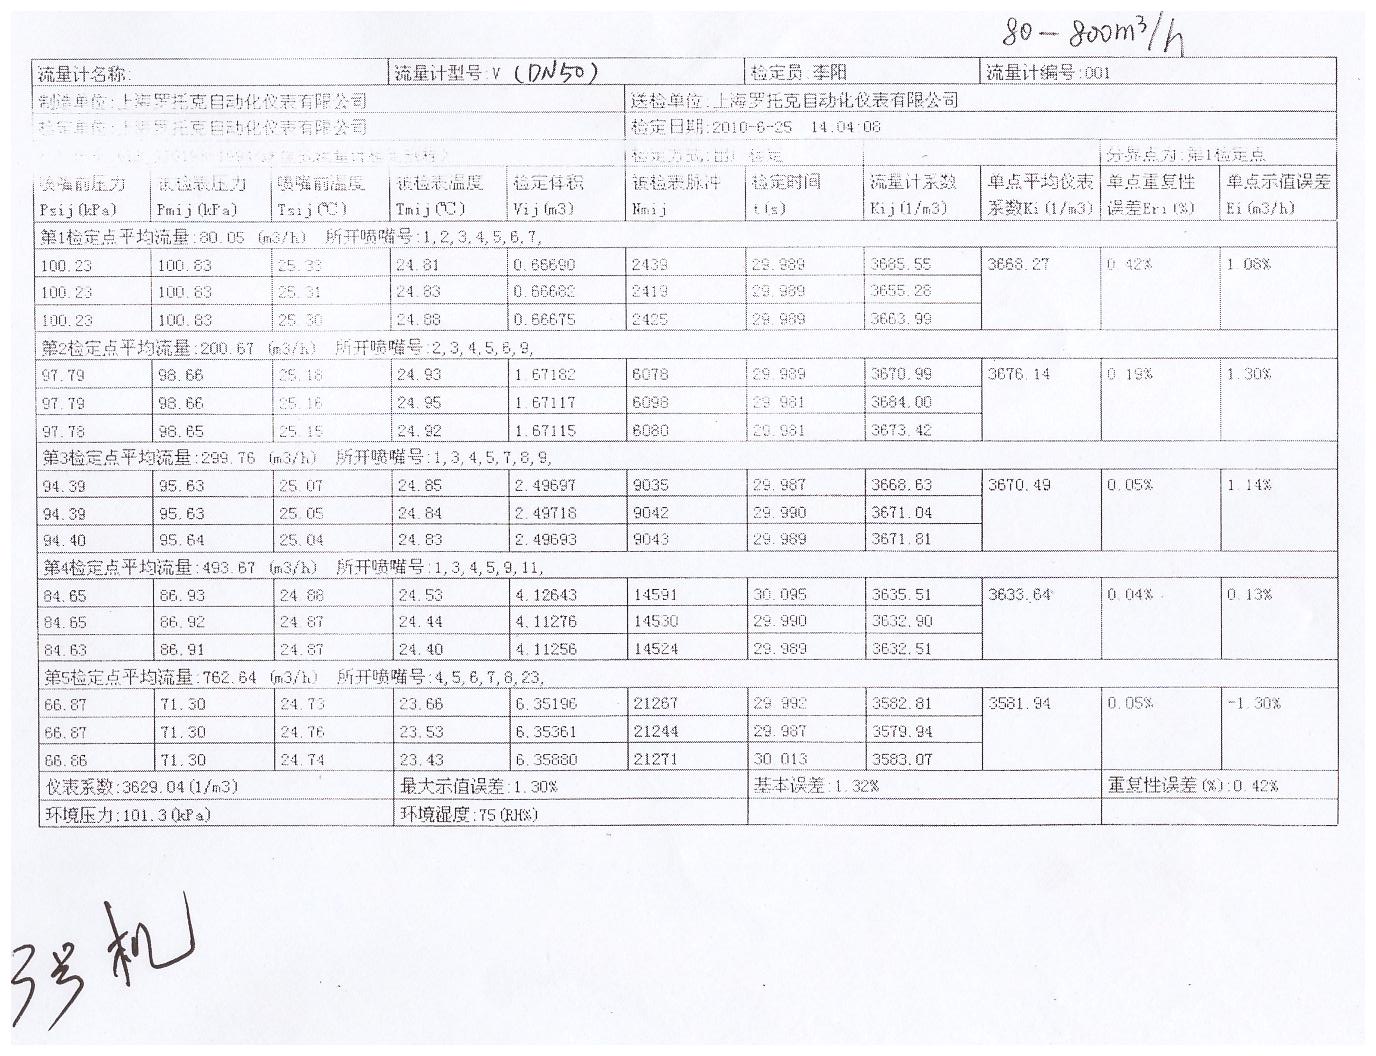 80-800m³/h
流量计名称: 流量计型号:V (DN50) 检定员:李阳 流量计编号:001
制造单位:上海罗托克自动化仪表有限公司 送检单位:上海罗托克自动化仪表有限公司
检定单位:上海罗托克自动化仪表有限公司 检定日期:2010-6-25 14:04:08
检定方式: 检定 分界点为:第1检定点
喷嘴前压力 被检表压力 喷嘴前温度 被检表温度 检定体积 被检表脉冲 检定时间 流量计系数 单点平均仪表 单点重复性 单点示值误差
Psij(kPa) Pmij(kPa) Tsij(℃) Tmij(℃) Vij(m3) Nmij t(s) Kij(1/m3) 系数Ki(1/m3) 误差Eri(%) Ei(m3/h)
第1检定点平均流量:80.05 (m3/h) 所开喷嘴号:1,2,3,4,5,6,7,
100.23 100.83 25.33 24.81 0.66690 2439 29.989 3685.55 3668.27 0.42% 1.08%
100.23 100.83 25.31 24.83 0.66682 2419 29.989 3655.28
100.23 100.83 25.30 24.88 0.66675 2425 29.989 3663.99
第2检定点平均流量:200.67 (m3/h) 所开喷嘴号:2,3,4,5,6,9,
97.79 98.66 25.18 24.93 1.67182 6078 29.989 3670.99 3676.14 0.19% 1.30%
97.79 98.66 25.16 24.95 1.67117 6098 29.981 3684.00
97.78 98.65 25.15 24.92 1.67115 6080 29.981 3673.42
第3检定点平均流量:299.76 (m3/h) 所开喷嘴号:1,3,4,5,7,8,9,
94.39 95.63 25.07 24.85 2.49697 9035 29.987 3668.63 3670.49 0.05% 1.14%
94.39 95.63 25.05 24.84 2.49718 9042 29.990 3671.04
94.40 95.64 25.04 24.83 2.49693 9043 29.989 3671.81
第4检定点平均流量:493.67 (m3/h) 所开喷嘴号:1,3,4,5,9,11,
84.65 86.93 24.88 24.53 4.12643 14591 30.095 3635.51 3633.64 0.04% 0.13%
84.65 86.92 24.87 24.44 4.11276 14530 29.990 3632.90
84.63 86.91 24.87 24.40 4.11256 14524 29.989 3632.51
第5检定点平均流量:762.64 (m3/h) 所开喷嘴号:4,5,6,7,8,23,
66.87 71.30 24.73 23.66 6.35196 21267 29.992 3582.81 3581.94 0.05% -1.30%
66.87 71.30 24.76 23.53 6.35361 21244 29.987 3579.94
66.86 71.30 24.74 23.43 6.35880 21271 30.013 3583.07
仪表系数:3629.04(1/m3) 最大示值误差:1.30% 基本误差:1.32% 重复性误差(%):0.42%
环境压力:101.30(kPa) 环境湿度:75(RH%)
3号机